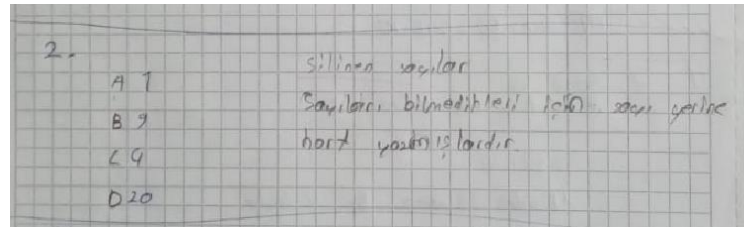 2.
A 1
B 9
C 4
D 20
Silinen sayılar
Sayıları bilmedikleri için sayı yerine
harf yazmışlardır.